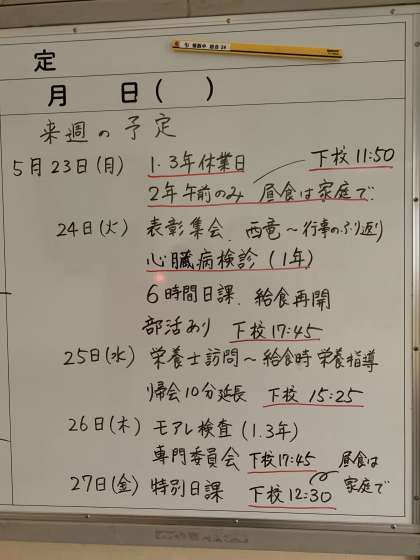 定
月 日( )
来週の予定
5月23日(月) 1.3年休業日 下校11:50
2年午前のみ 昼食は家庭で
24日(火) 表彰集会、西竜～行事のふり返り
心臓病検診(1年)
6時間日課、給食再開
部活あり 下校17:45
25日(水) 栄養士訪問～給食時栄養指導
帰会10分延長 下校 15:25
26日(木) モアレ検査(1.3年)
専門委員会 下校17:45 昼食は
27日(金) 特別日課 下校12:30 家庭で